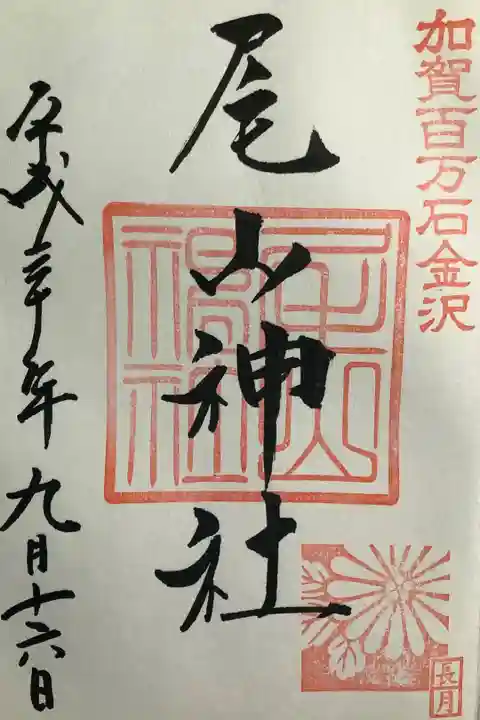 加賀百万石金沢
尾山神社
長月
平成三十年九月十六日